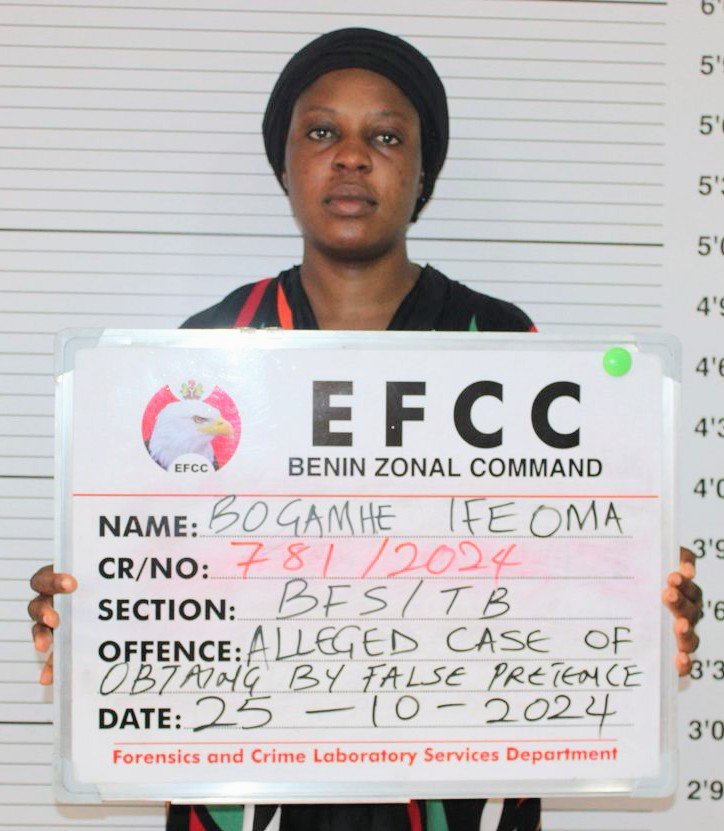 EFCC
EFCC
BENIN ZONAL COMMAND
NAME: BOGAMHE IFEOMA
CR/NO: 781/2024
SECTION: BFS/TB
OFFENCE: ALLEGED CASE OF
OBTAING BY FALSE PRETENCE
DATE: 25-10-2024
Forensics and Crime Laboratory Services Department
5'0
4'9
4'6
4'3
4'0
3'9
3'3
3'0
2'9